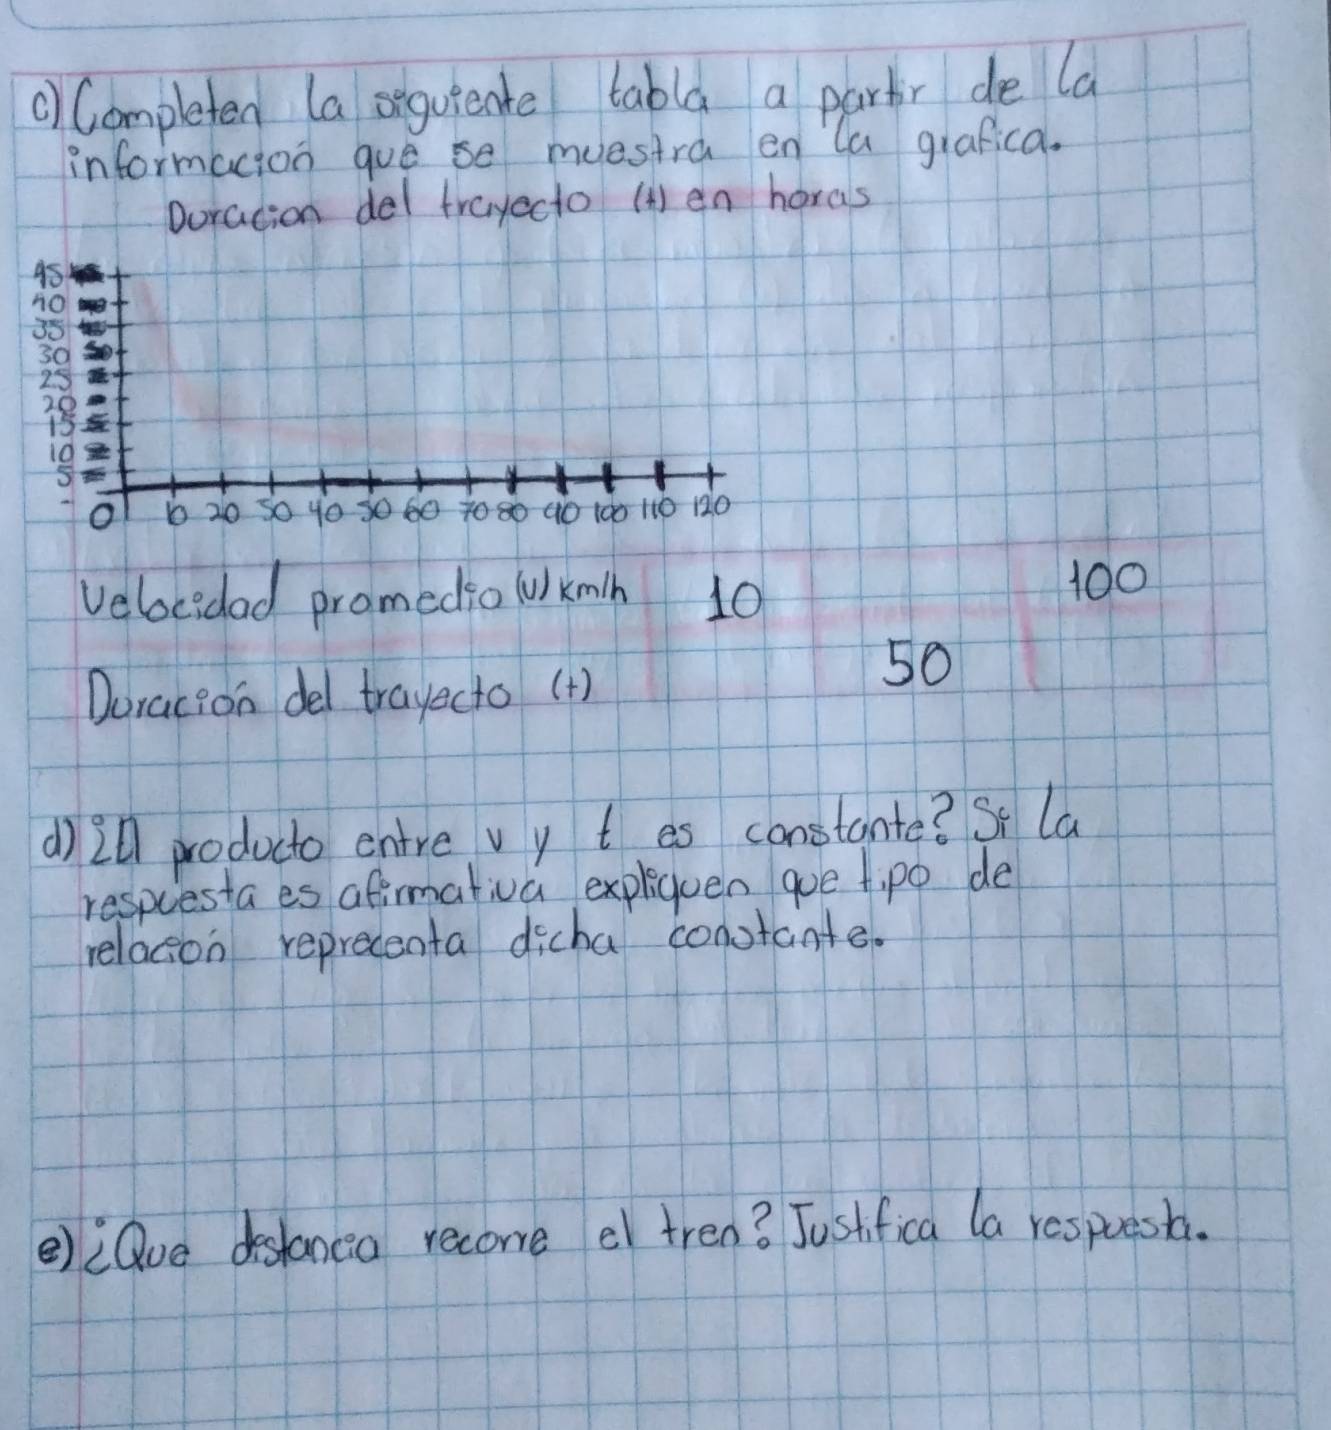 c) Completen la siguiente tabla a partir de la
informacion que se muestra en la grafica.
Duracion del trayecto (t) en horas
45
40
35
30
25
20
15
10
5
0 10 20 30 40 50 60 70 80 90 100 110 120
Velocidad promedio (v) km/h 10 100
Duración del trayecto (t) 50
d) ¿El producto entre v y t es constante? Si la
respuesta es afirmativa expliquen que tipo de
relacion reprecenta dicha constante.
e) ¿Que distancia recorre el tren? Justifica la respuesta.